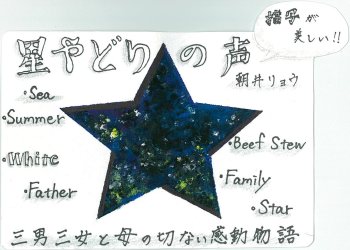 星やどりの声
描写が
美しい!!
朝井リョウ
・Sea
・Summer
・White
・Father
・Beef Stew
・Family
・Star
三男三女と母の切ない感動物語